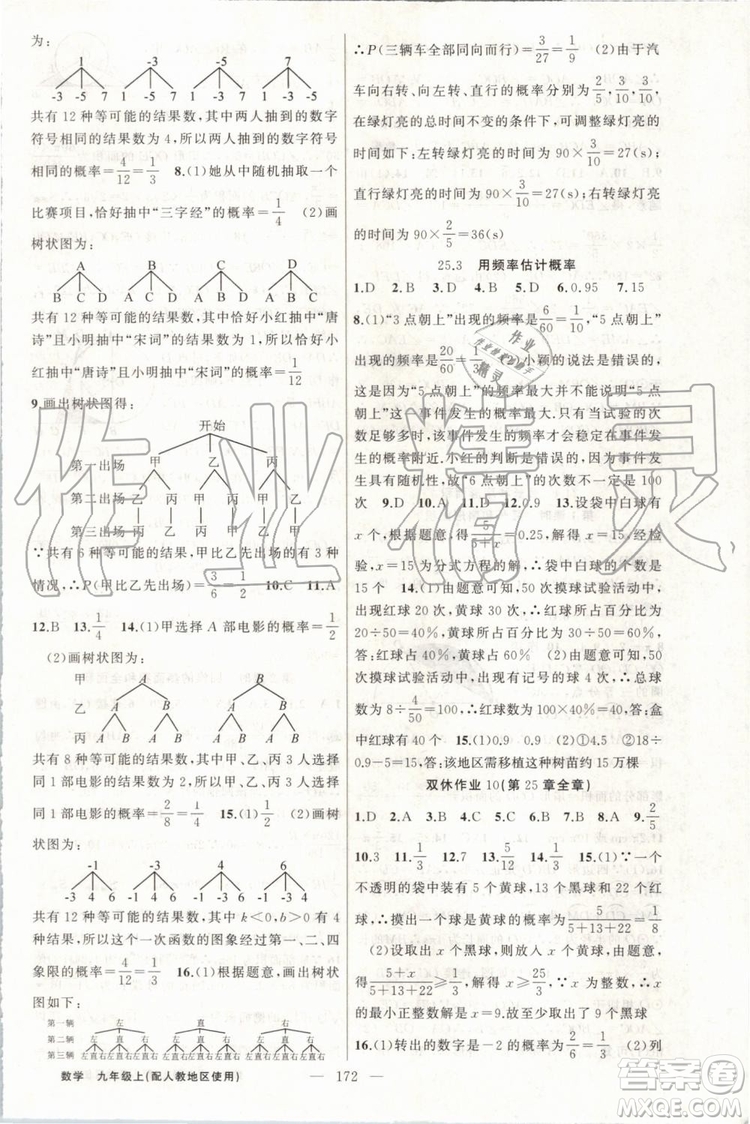 为：
1 -3 -5 -5 7
-3 -5 7 1 -3 -5 7 1 -3 -5
共有 12 种等可能的结果数，其中两人抽到的数字
符号相同的结果数为 4，所以两人抽到的数字符号
相同的概率＝4/12＝1/3 8.(1)她从中随机抽取一个
比赛项目，恰好抽中“三字经”的概率＝1/4 (2)画
树状图为：
A B C D
B C D A C D A B D A B C
共有 12 种等可能的结果数，其中恰好小红抽中“唐
诗”且小明抽中“宋词”的结果数为 1，所以恰好小红
抽中“唐诗”且小明抽中“宋词”的概率＝1/12
9.画出树状图得：
开始
第一出场 甲 乙 丙
第二出场 乙 丙 甲 丙 甲 乙
第三出场 丙 乙 丙 甲 乙 甲
∵共有 6 种等可能的结果，甲比乙先出场的有 3 种
情况，∴P(甲比乙先出场)＝3/6＝1/2 10.C 11.A
12.B 13.1/4 14.(1)甲选择 A 部电影的概率＝1/2
(2)画树状图为：
甲 A B
乙 A B A B
丙 A B A B A B A B
共有 8 种等可能的结果数，其中甲、乙、丙 3 人选择
同 1 部电影的结果数为 2，所以甲、乙、丙 3 人选择
同 1 部电影的概率＝2/8＝1/4 15.(1)画树状图
为：
-1 -3 4 6
-3 4 6 -1 4 6 -1 -3 6 -1 -3 4
共有 12 种等可能的结果数 (2)其中 k＜0，b＞0 有 4
种结果，所以这个一次函数的图象经过第一、二、四
象限的概率＝4/12＝1/3 16.(1)根据题意，画出树状
图如下：
第一辆 左 直 右
第二辆 左 直 右 左 直 右 左 直 右
第三辆 左直右 左直右 左直右 左直右 左直右 左直右 左直右 左直右 左直右
∴P(三辆车全部同向而行)＝3/27＝1/9 (2)由于汽
车向右转、向左转、直行的概率分别为2/5，3/10，3/10，
在绿灯亮的总时间不变的条件下，可调整绿灯亮的
时间如下：左转绿灯亮的时间为 90×3/10＝27(s)；
直行绿灯亮的时间为 90×3/10＝27(s)；右转绿灯亮
的时间为 90×2/5＝36(s)
25.3 用频率估计概率
1.D 2.B 3.D 4.B 5.D 6.0.95 7.15
8.(1)“3 点朝上”出现的频率是6/60＝1/10，“5 点朝上”
出现的频率是20/60＝1/3 (2)小颖的说法是错误的，
这是因为“5 点朝上”的频率最大并不能说明“5 点
朝上”这一事件发生的概率最大，只有当试验的次
数足够多时，该事件发生的频率才会稳定在事件发
生的概率附近．小红的判断是错误的，因为事件发
生具有随机性，故“6 点朝上”的次数不一定是 100
次 9.D 10.A 11.D 12.0.9 13.设袋中白球有
x 个，根据题意，得5/(5＋x)＝0.25，解得 x＝15，经检
验，x＝15 为分式方程的解，∴袋中白球的个数为
15 个 14.(1)由题意可知，50 次摸球试验活动中，
出现红球 20 次，黄球 30 次，∴红球所占百分比为
20÷50＝40％，黄球所占百分比为 30÷50＝60％，
答：红球占 40％，黄球占 60％ (2)由题意可知，50
次摸球试验活动中，出现有记号的球 4 次，∴总球
数为 8÷4/50＝100，∴红球数为 100×40％＝40，答：盒
中红球有 40 个 15.(1)0.9 0.9 (2)①4.5 ②18÷
0.9－5＝15，答：该地区需移植这种树苗约 15 万棵
双休作业 10(第 25 章全章)
1.D 2.A 3.C 4.D 5.D 6.C 7.B 8.A 9.2/5
10.3 11.1/3 12.7 13.1/2 14.1/3 15.(1)∵一个
不透明的袋中装有 5 个黄球，13 个黑球和 22 个红
球，∴摸出一个球是黄球的概率为5/(5＋13＋22)＝1/8
(2)设取出 x 个黑球，则放入 x 个黄球，由题意，
得(5＋x)/(5＋13＋22)≥1/3，解得 x≥25/3，∵x 为整数，∴x
的最小正整数解是 x＝9，故至少取出了 9 个黑球
16.(1)转出的数字是－2 的概率是1/3 (2)列
数学 九年级上(配人教地区使用)
— 172 —
作业精灵
答案圈
MXQE.COM